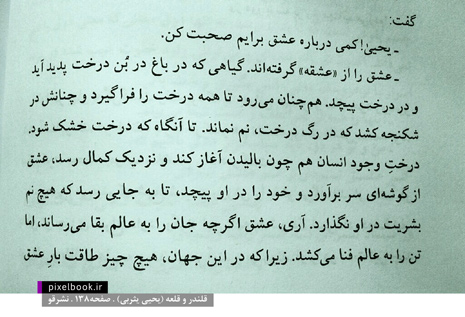 گفت:
ـ یحیی! کمی درباره عشق برایم صحبت کن.
ـ عشق را از «عشقه» گرفته‌اند. گیاهی که در باغ در بُن درخت پدید آید
و در درخت پیچد. هم‌چنان می‌رود تا همه درخت را فرا گیرد و چنانش در
شکنجه کشد که در رگ درخت، نم نماند. تا آنگاه که درخت خشک شود.
درختِ وجود انسان هم چون بالیدن آغاز کند و نزدیک کمال رسد، عشق
از گوشه‌ای سر برآورد و خود را در او پیچد، تا به جایی رسد که هیچ نم
بشریت در او نگذارد. آری، عشق اگرچه جان را به عالم بقا می‌رساند، اما
تن را به عالم فنا می‌کشد. زیرا که در این جهان، هیچ چیز طاقت بارِ عشق
pixelbook.ir
قلندر و قلعه (یحیی یثربی) . صفحه۱۳۸ . نشرقو